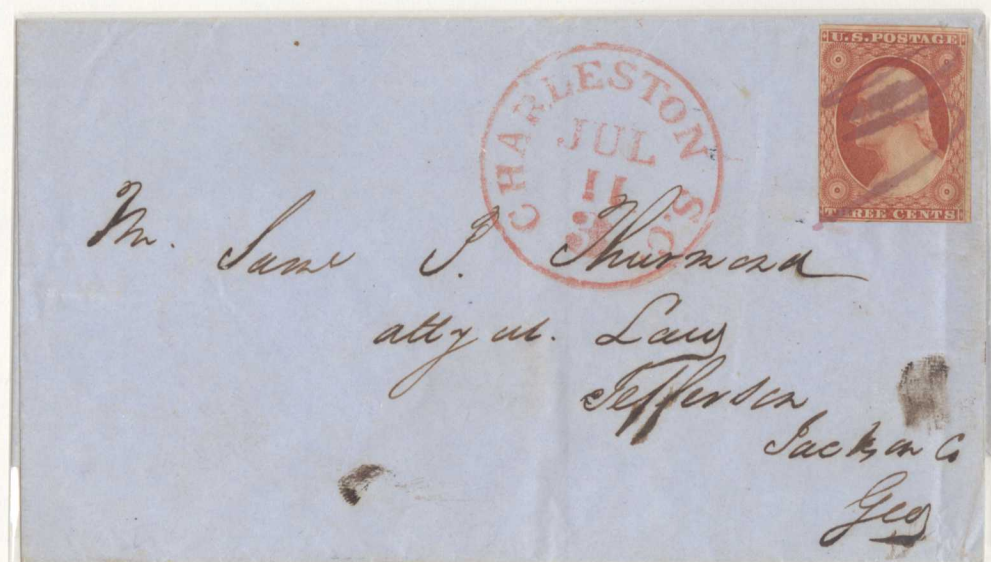 U.S. POSTAGE
THREE CENTS
CHARLESTON S.C.
JUL
11
Mr. Saml P. Thurmond
atty at. Law
Jefferson
Jackson Co
Geo